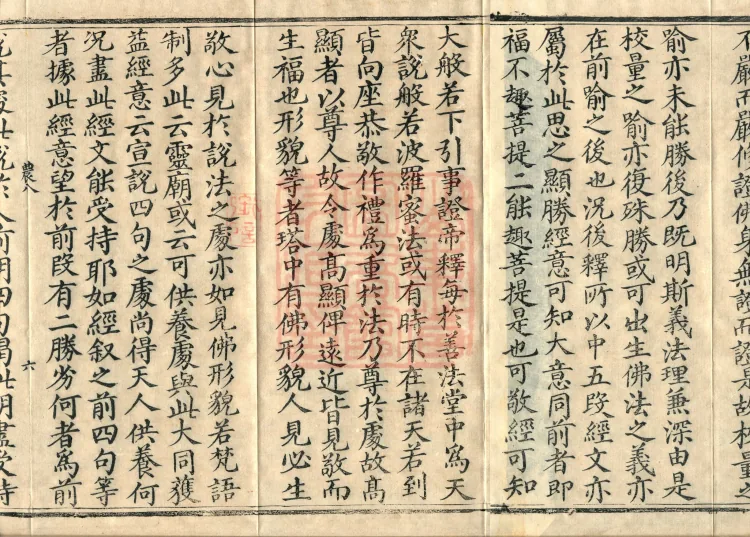 不嚴而嚴修證佛身無說而證是故校量
喻亦未能勝後乃既明斯義法理兼深由是
校量之喻亦復殊勝或可出生佛法之義亦
在前喻之後也況後釋所以中五段經文亦
屬於此思之顯勝經意可知大意同前者即
福不趣菩提二能趣菩提是也可敬經可知
大般若下引事證帝釋每於善法堂中為天
眾說般若波羅蜜法或有時不在諸天若到
皆向座恭敬作禮為重於法乃尊於處故高
顯者以尊人故令處高顯俾遠近皆見敬而
生福也形貌等者塔中有佛形貌人見必生
敬心見於說法之處亦如見佛形貌若梵語
制多此云靈廟或云可供養處與此大同蓋
益經意云宣說四句之處尚得天人供養何
況盡此經文能受持耶如經敘之前四句等
者據此經意望於前段有二勝劣何者為前
農八
六
說其處此說於人前明四句偈此明盡受持